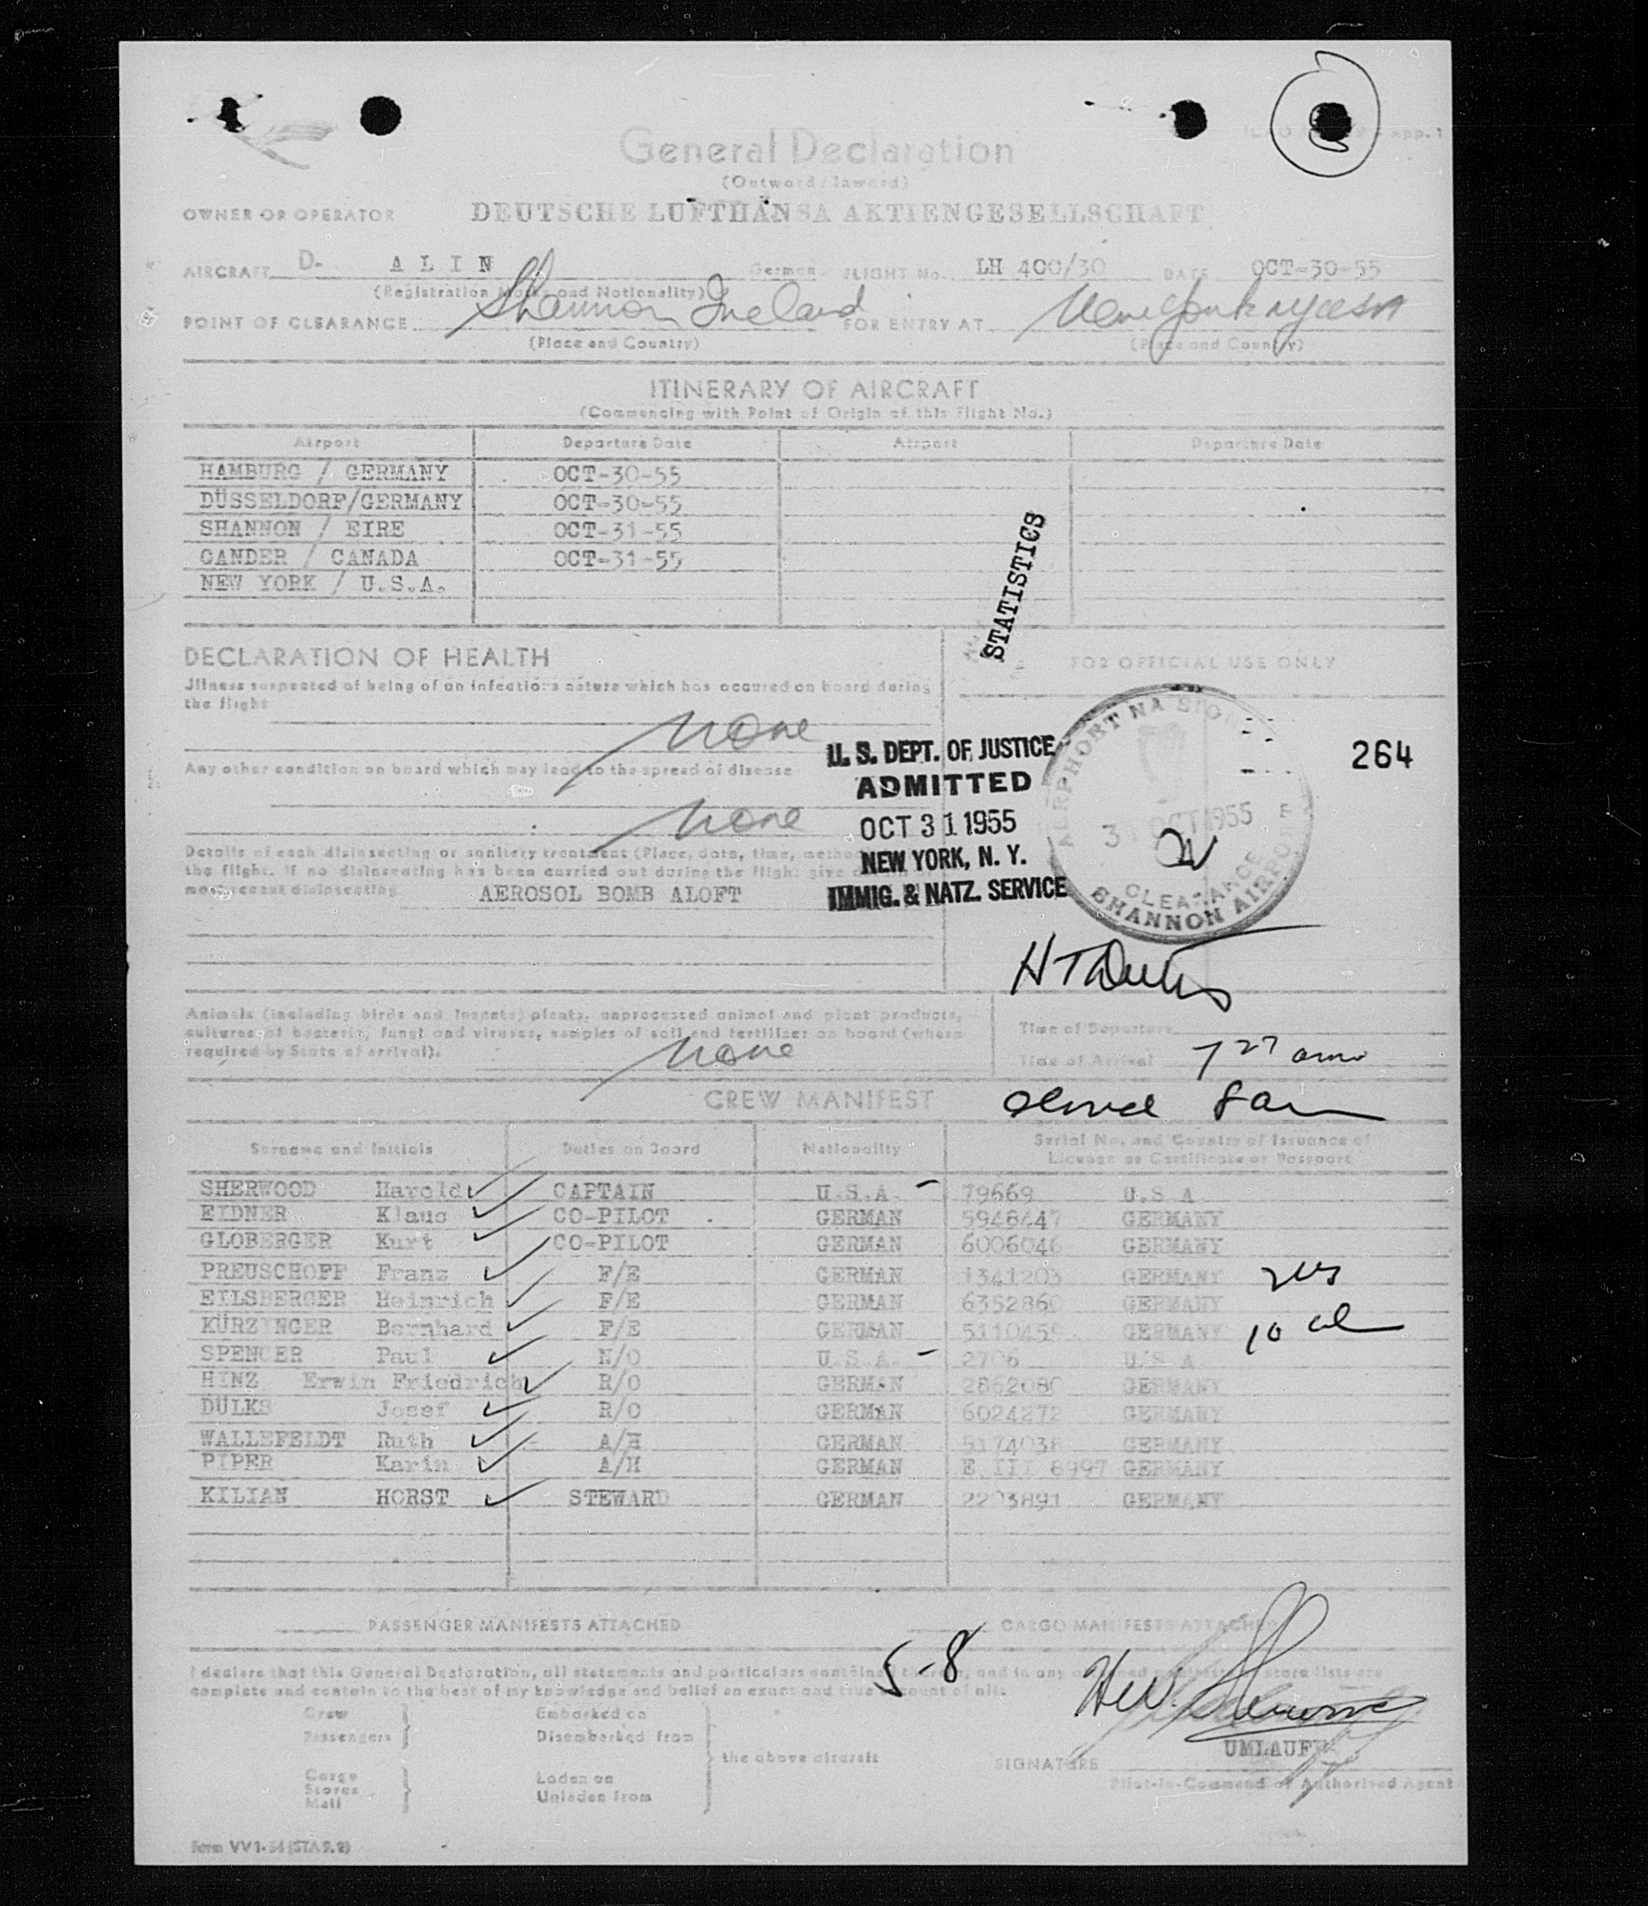 General Declaration
(Outward/Inward)
OWNER OR OPERATOR DEUTSCHE LUFTHANSA AKTIENGESELLSCHAFT
AIRCRAFT D- ALIN German FLIGHT No. LH 400/30 DATE OCT-30-55
(Registration Marks and Nationality)
POINT OF CLEARANCE Shannon Ireland FOR ENTRY AT New York ny USA
(Place and Country) (Place and Country)
ITINERARY OF AIRCRAFT
(Commencing with Point of Origin of this Flight No.)
Airport Departure Date Airport Departure Date
HAMBURG / GERMANY OCT-30-55
DÜSSELDORF/GERMANY OCT-30-55
SHANNON / EIRE OCT-31-55
GANDER / CANADA OCT-31-55
NEW YORK / U.S.A.
STATISTICS
DECLARATION OF HEALTH
FOR OFFICIAL USE ONLY
Illness suspected of being of an infectious nature which has occured on board during
the flight
none
Any other condition on board which may lead to the spread of disease
none
U. S. DEPT. OF JUSTICE
ADMITTED
OCT 31 1955
NEW YORK, N. Y.
IMMIG. & NATZ. SERVICE
AERPHORT NA
OCT 1955
CLEARANCE
SHANNON AIRPORT
264
Details of each disinsecting or sanitary treatment (Place, date, time, method
the flight. If no disinsecting has been carried out during the flight give
most recent disinsecting AEROSOL BOMB ALOFT
Animals (including birds and insects) plants, unprocessed animal and plant products,
cultures of bacteria, fungi and viruses, samples of soil and fertilizer on board (where
required by State of arrival).
none
Time of Departure
Time of Arrival 7 27 am
CREW MANIFEST
Surname and Initials Duties on Board Nationality Serial No. and Country of Issuance of
License or Certificate or Passport
SHERWOOD Harold CAPTAIN U.S.A. 79669 U.S.A
EIDNER Klaus CO-PILOT GERMAN 5948447 GERMANY
GLOBERGER Kurt CO-PILOT GERMAN 6006046 GERMANY
PREUSCHOFF Franz F/E GERMAN 1341203 GERMANY
EILSBERGER Heinrich F/E GERMAN 6352860 GERMANY
KÜRZINGER Bernhard F/E GERMAN 5110459 GERMANY
SPENCER Paul N/O U.S.A. 2706 U.S.A
HINZ Erwin Friedrich R/O GERMAN 2862080 GERMANY
DÜLKS Josef R/O GERMAN 6024272 GERMANY
WALLEFELDT Ruth A/H GERMAN 5174038 GERMANY
PIPER Karin A/H GERMAN E III 8997 GERMANY
KILIAN HORST STEWARD GERMAN 2203891 GERMANY
PASSENGER MANIFESTS ATTACHED CARGO MANIFESTS ATTACHED
5-8
I declare that this General Declaration, all statements and particulars contained therein, and in any store lists are
complete and contain to the best of my knowledge and belief an exact and true account of all.
Crew Embarked on
Passengers Disembarked from
the above aircraft
Cargo Loden on
Stores Unladen from
Mail
SIGNATURE UMLAUFF
Pilot-in-Command or Authorised Agent
Form VV1-54 (STA9.2)